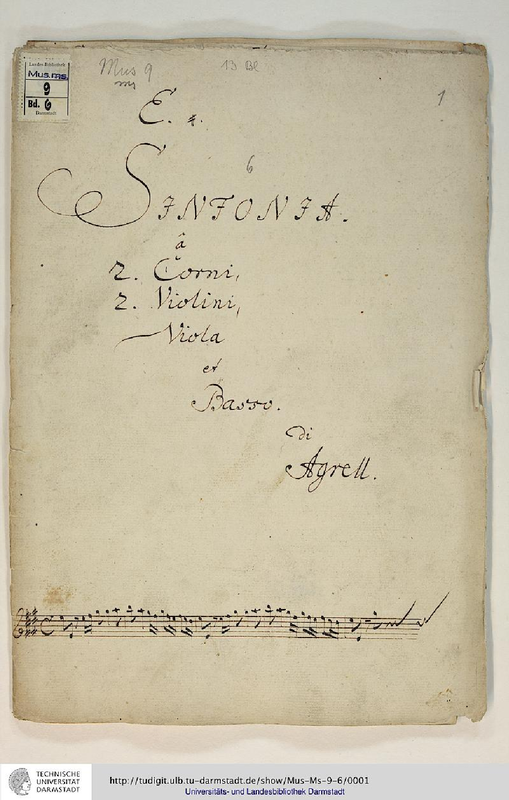 Landes Bibliothek
Mus. ms.
9
Bd. 6
Darmstadt
Mus 9
ms
13 Bl
1
E. #.
6
SINFONIA.
â
2. Corni,
2. Violini,
Viola
et
Basso.
di
Agrell.
TECHNISCHE
UNIVERSITÄT
DARMSTADT
http://tudigit.ulb.tu-darmstadt.de/show/Mus-Ms-9-6/0001
Universitäts- und Landesbibliothek Darmstadt